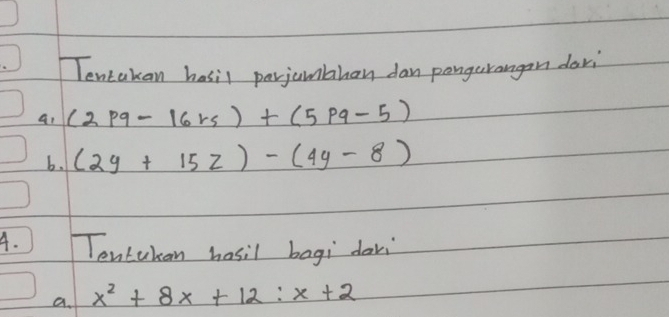 Tentukan hasil perjumlahan dan pengurangan dari
a. (2pq - 16rs) + (5pq - 5)
b. (2y + 15z) - (4y - 8)
4. Tentukan hasil bagi dari
a. x² + 8x + 12 : x + 2